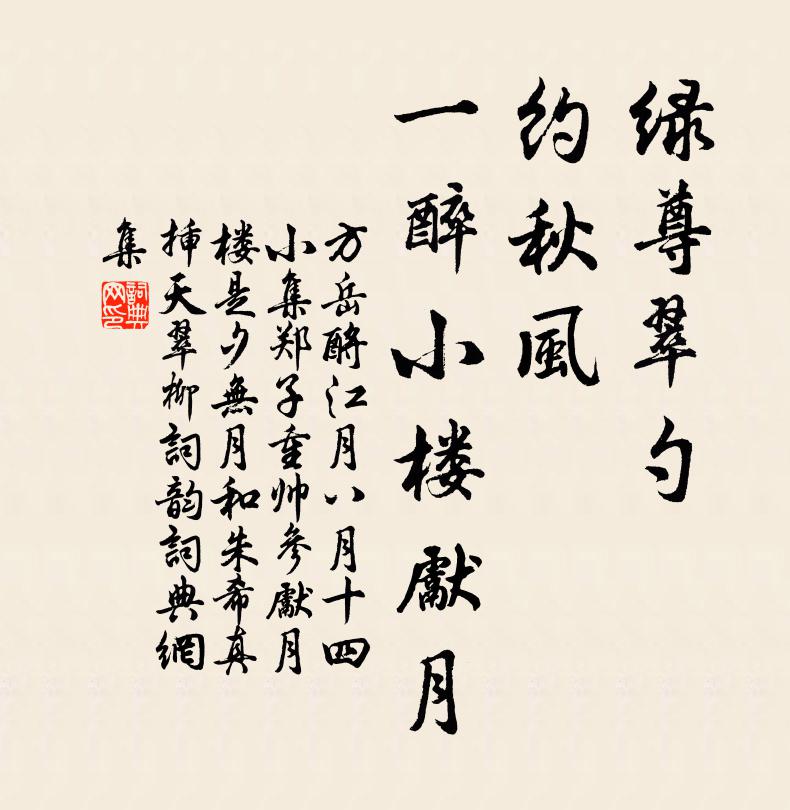 绿尊翠勺
约秋風
一醉小楼獻月
方岳酹江月八月十四
小集郑子重帅參獻月
楼是夕無月和朱希真
挿天翠柳詞韵詞典網
集
詞典
网印